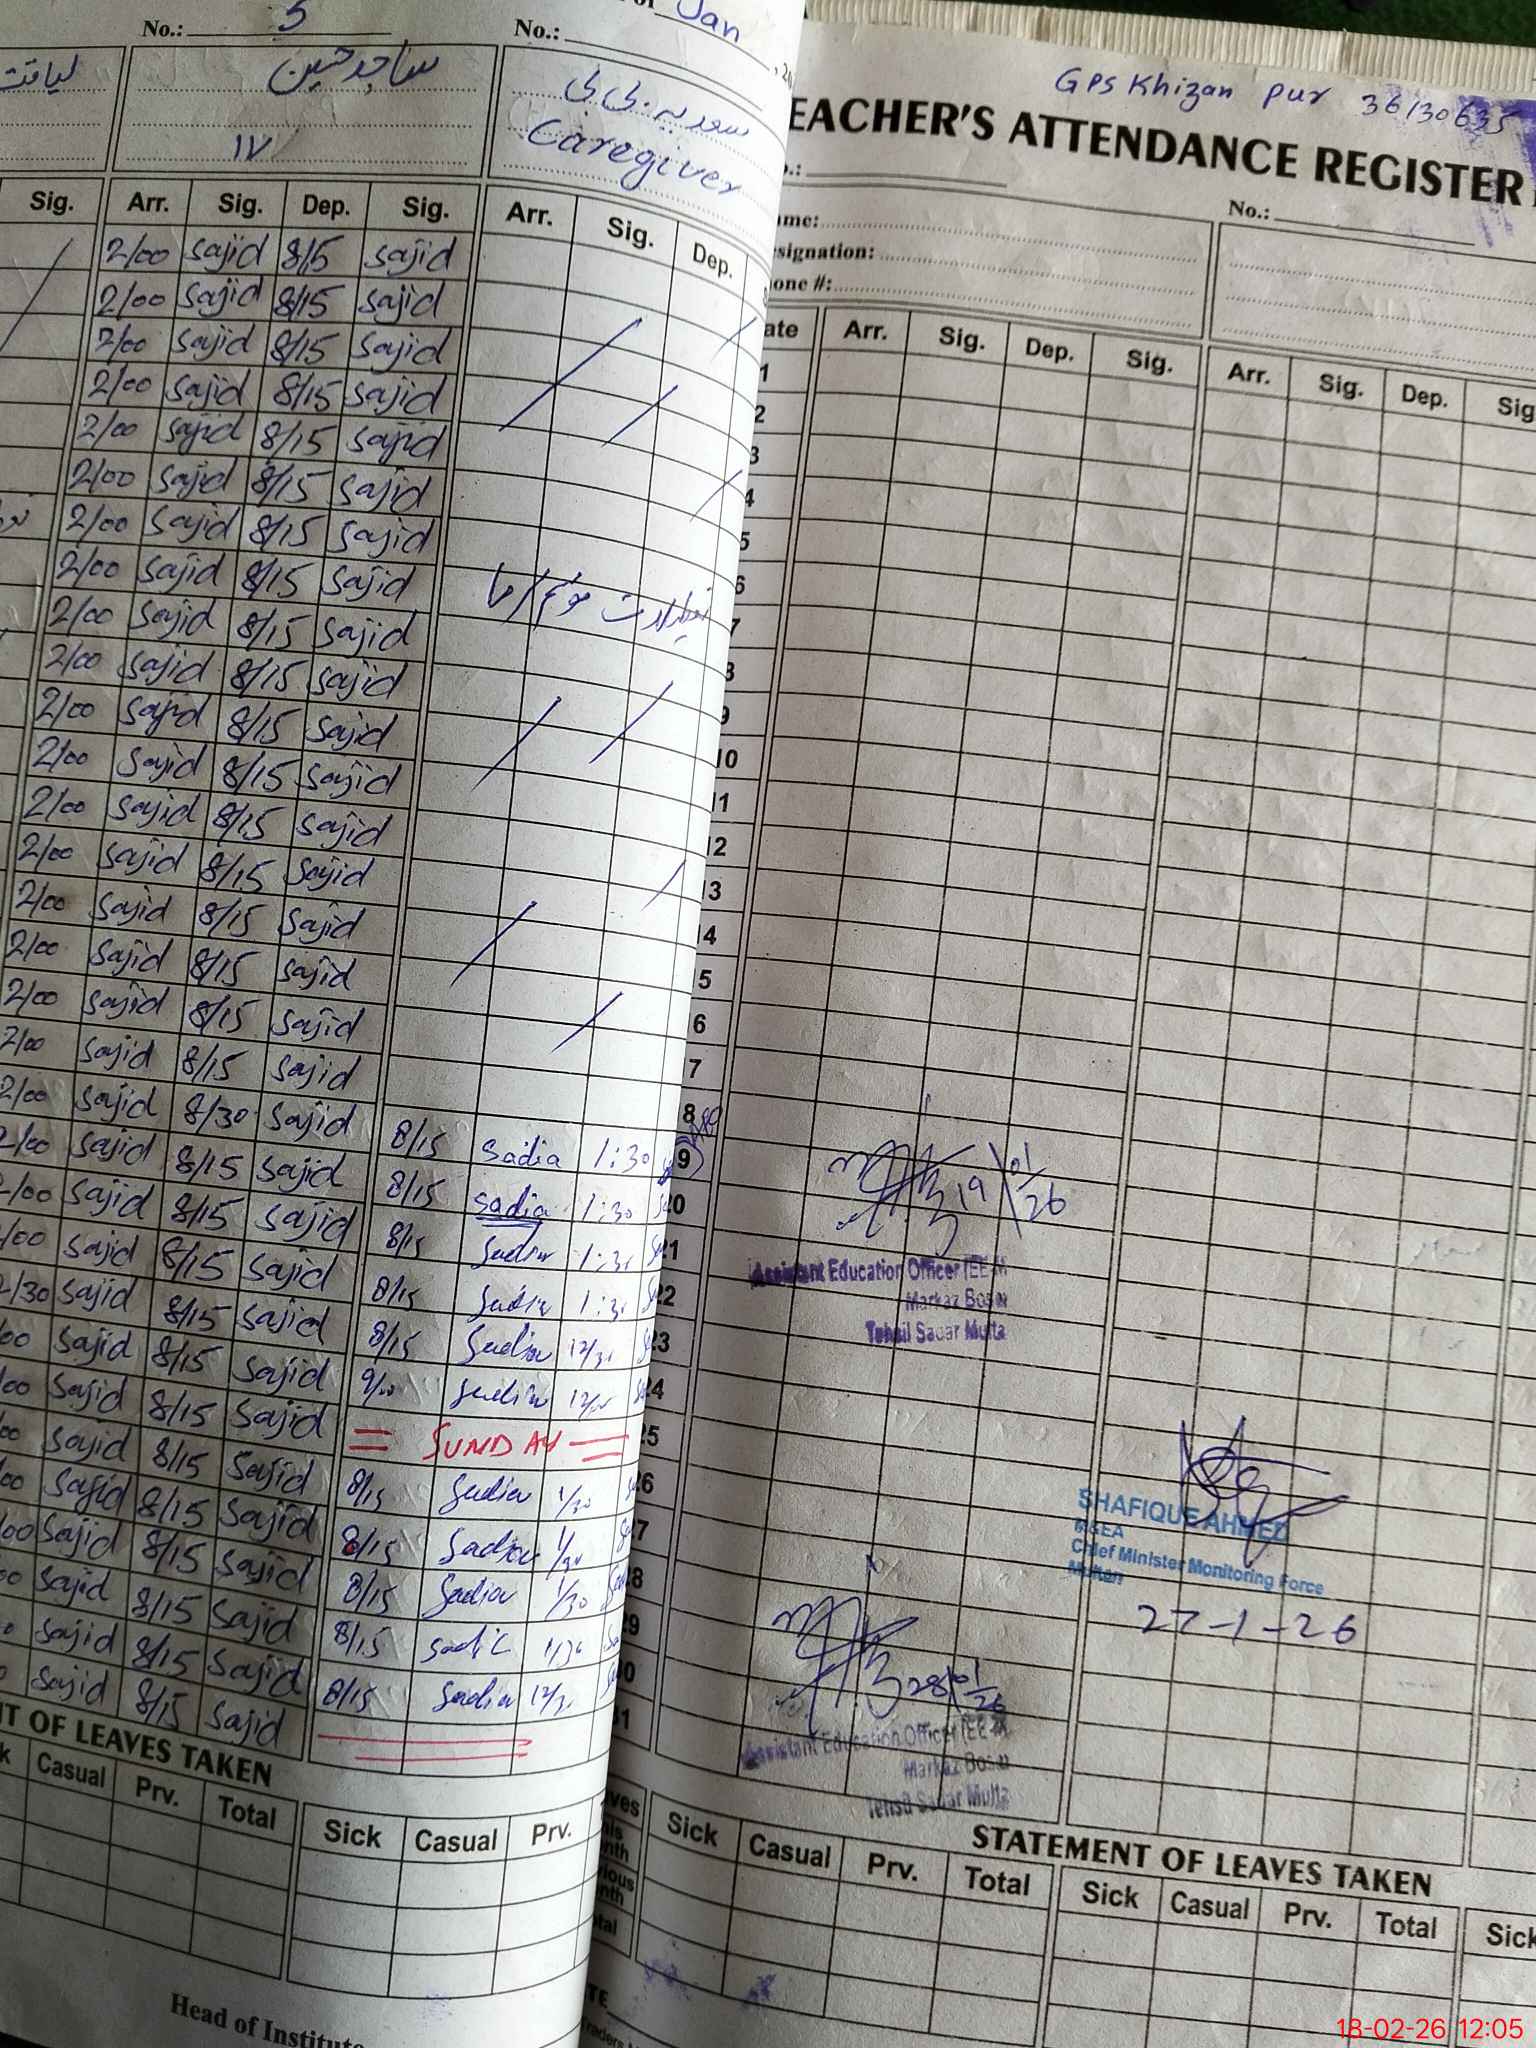 No.: 5
of Jan, 20
No.:
لیاقت
ساجد حسین
۱۷
سعدیہ بی بی
Caregiver
Sig. Arr. Sig. Dep. Sig. Arr. Sig. Dep.
2/00 Sajid 8/15 Sajid
2/00 Sajid 8/15 Sajid
2/00 Sajid 8/15 Sajid
2/00 Sajid 8/15 Sajid
2/00 Sajid 8/15 Sajid
2/00 Sajid 8/15 Sajid
2/00 Sajid 8/15 Sajid
2/00 Sajid 8/15 Sajid
2/00 Sajid 8/15 Sajid
2/00 Sajid 8/15 Sajid
2/00 Sajid 8/15 Sajid
2/00 Sajid 8/15 Sajid
2/00 Sajid 8/15 Sajid
2/00 Sajid 8/15 Sajid
2/00 Sajid 8/15 Sajid
2/00 Sajid 8/15 Sajid
2/00 Sajid 8/15 Sajid
2/00 Sajid 8/15 Sajid
2/00 Sajid 8/30 Sajid 8/15 Sadia 1:30
2/00 Sajid 8/15 Sajid 8/15 Sadia 1:30
2/00 Sajid 8/15 Sajid 8/15 Sadia 1:30
/00 Sajid 8/15 Sajid 8/15 Sadia 1:30
2/30 Sajid 8/15 Sajid 8/15 Sadia 12/30
00 Sajid 8/15 Sajid 9/00 Sadia 12/00
/00 Sajid 8/15 Sajid = SUNDAY =
00 Sajid 8/15 Sajid 8/15 Sadia 1/30
00 Sajid 8/15 Sajid 8/15 Sadia 1/30
/00 Sajid 8/15 Sajid 8/15 Sadia 1/30
00 Sajid 8/15 Sajid 8/15 Sadia 1/30
Sajid 8/15 Sajid 8/15 Sadia 12/30
Sajid 8/15 Sajid
NT OF LEAVES TAKEN
k Casual Prv. Total Sick Casual Prv.
Head of Institute
GPS Khizan pur 36130635
EACHER'S ATTENDANCE REGISTER
o.: No.:
ame:
signation:
one #:
ate Arr. Sig. Dep. Sig. Arr. Sig. Dep. Sig
1
2
3
4
5
6
7
8
9
10
11
12
13
14
5
6
7
8
9
20
21
22
23
24
25
26
27
28
29
30
31
19/01/26
Assistant Education Officer (EE-M
Markaz Bosan
Tehsil Sadar Multa
SHAFIQUE AHMED
M&EA
Chief Minister Monitoring Force
Multan
27-1-26
28/01/26
Assistant Education Officer (EE-M
Markaz Bosan
Tehsil Sadar Multa
STATEMENT OF LEAVES TAKEN
ves Sick Casual Prv. Total Sick Casual Prv. Total Sick
his
nth
vious
nth
tal
TE
18-02-26 12:05